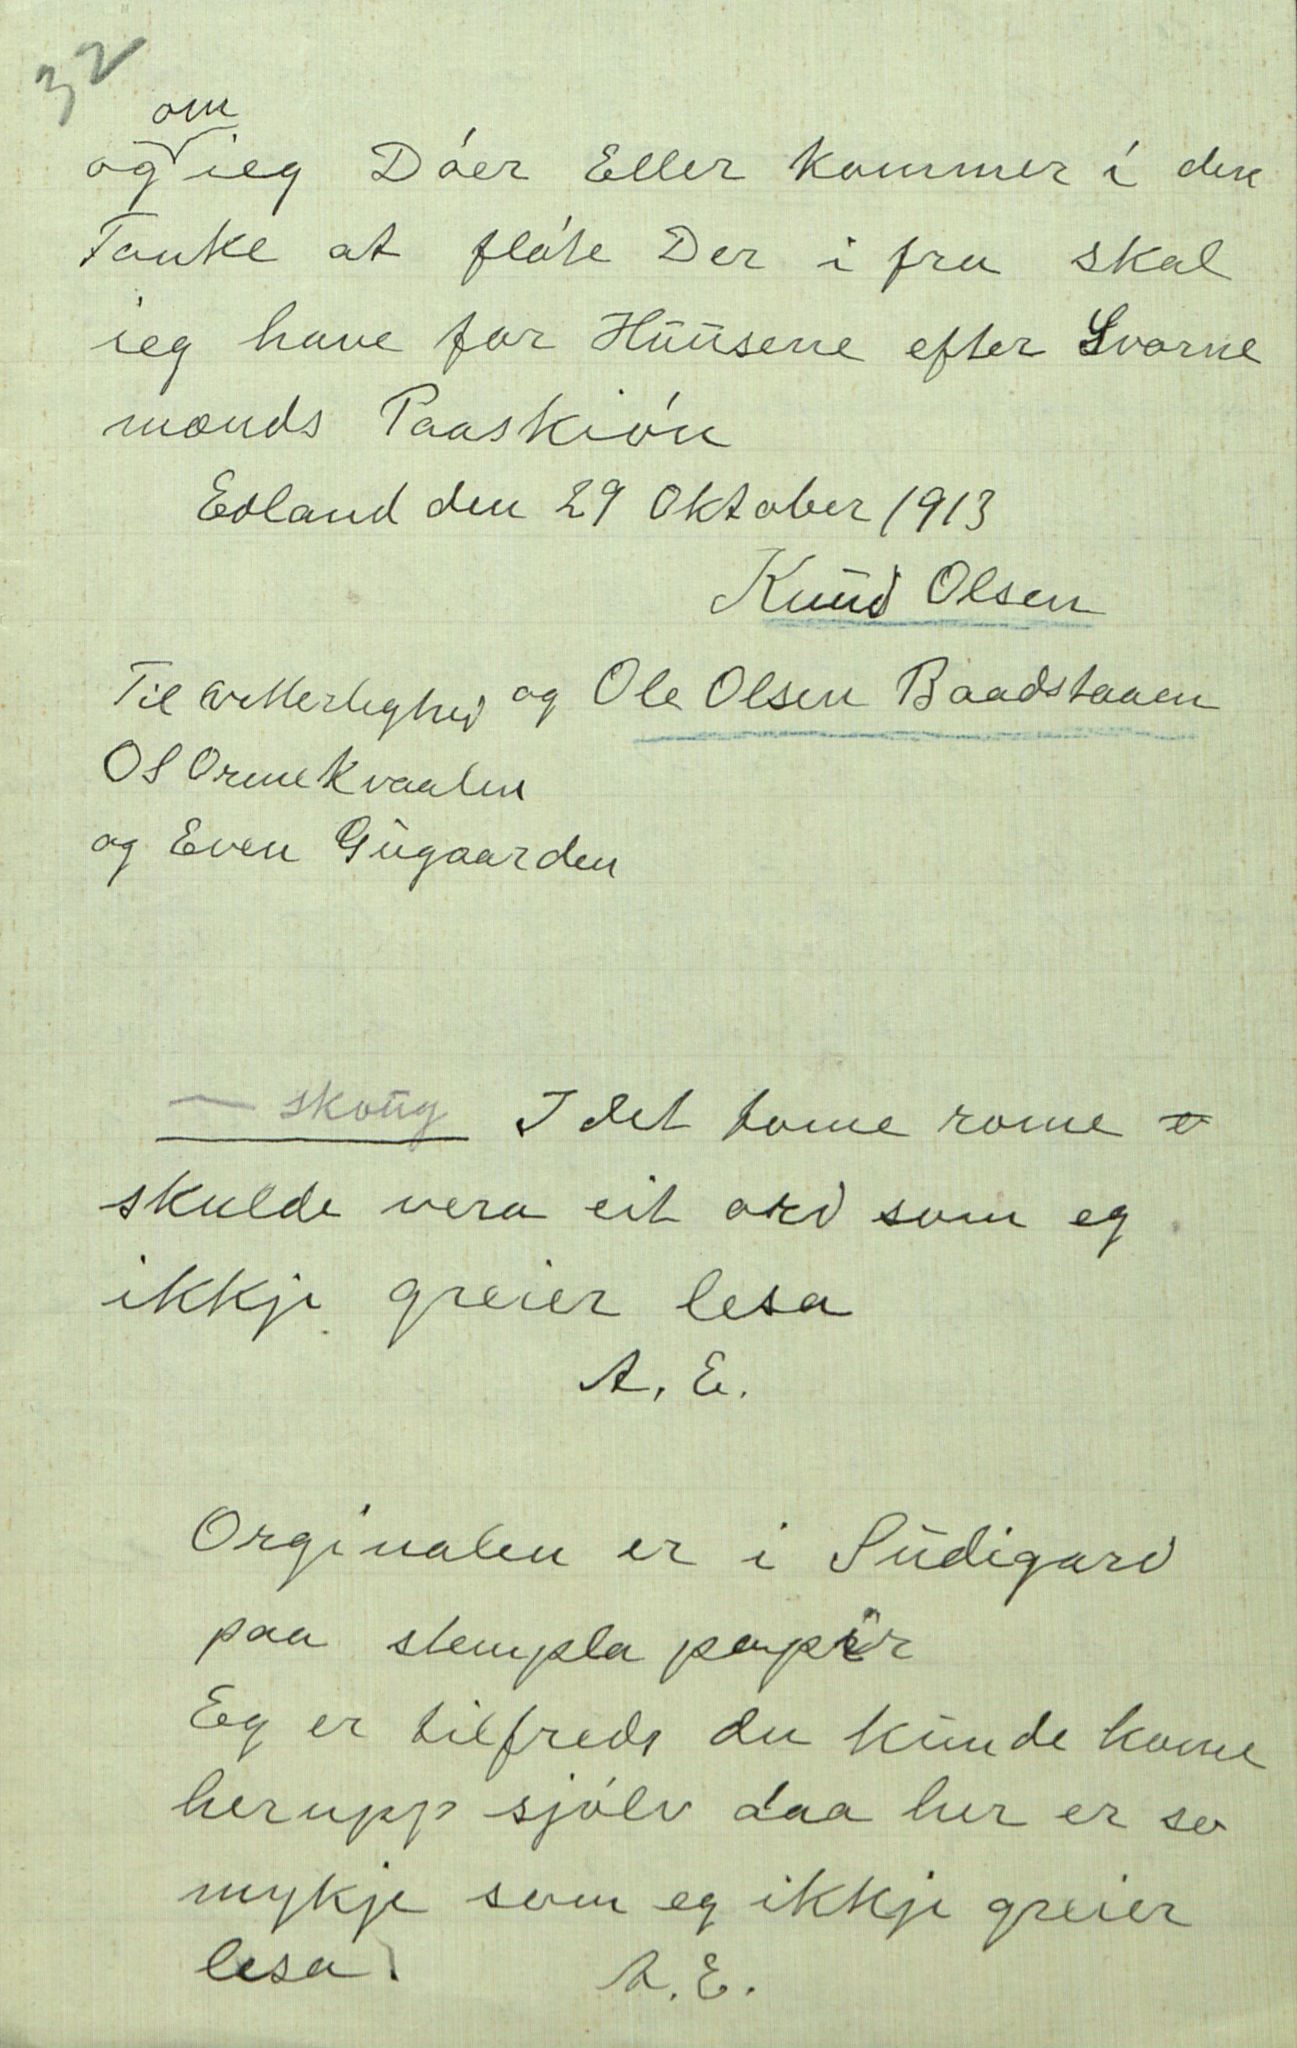 32
om
og ieg Dóer Eller kommer i den
Tanke at flóte Der i fra skal
ieg have for Huusene efter Svorne
mænds Paaskión
Edland den 29 Oktober 1913
Knud Olsen
Til vitterlighed og Ole Olsen Baadstaaen
OS Ormekvaalen
og Even Gugaarden
— skoug I det tome rome
skulde vera eit ord som eg
ikkje greier lesa
A. E.
Orginalen er i Sudigard
paa stempla papir
Eg er tilfreds du kunde kome
herupp sjólv daa her er so
mykje som eg ikkje greier
lesa.
A. E.